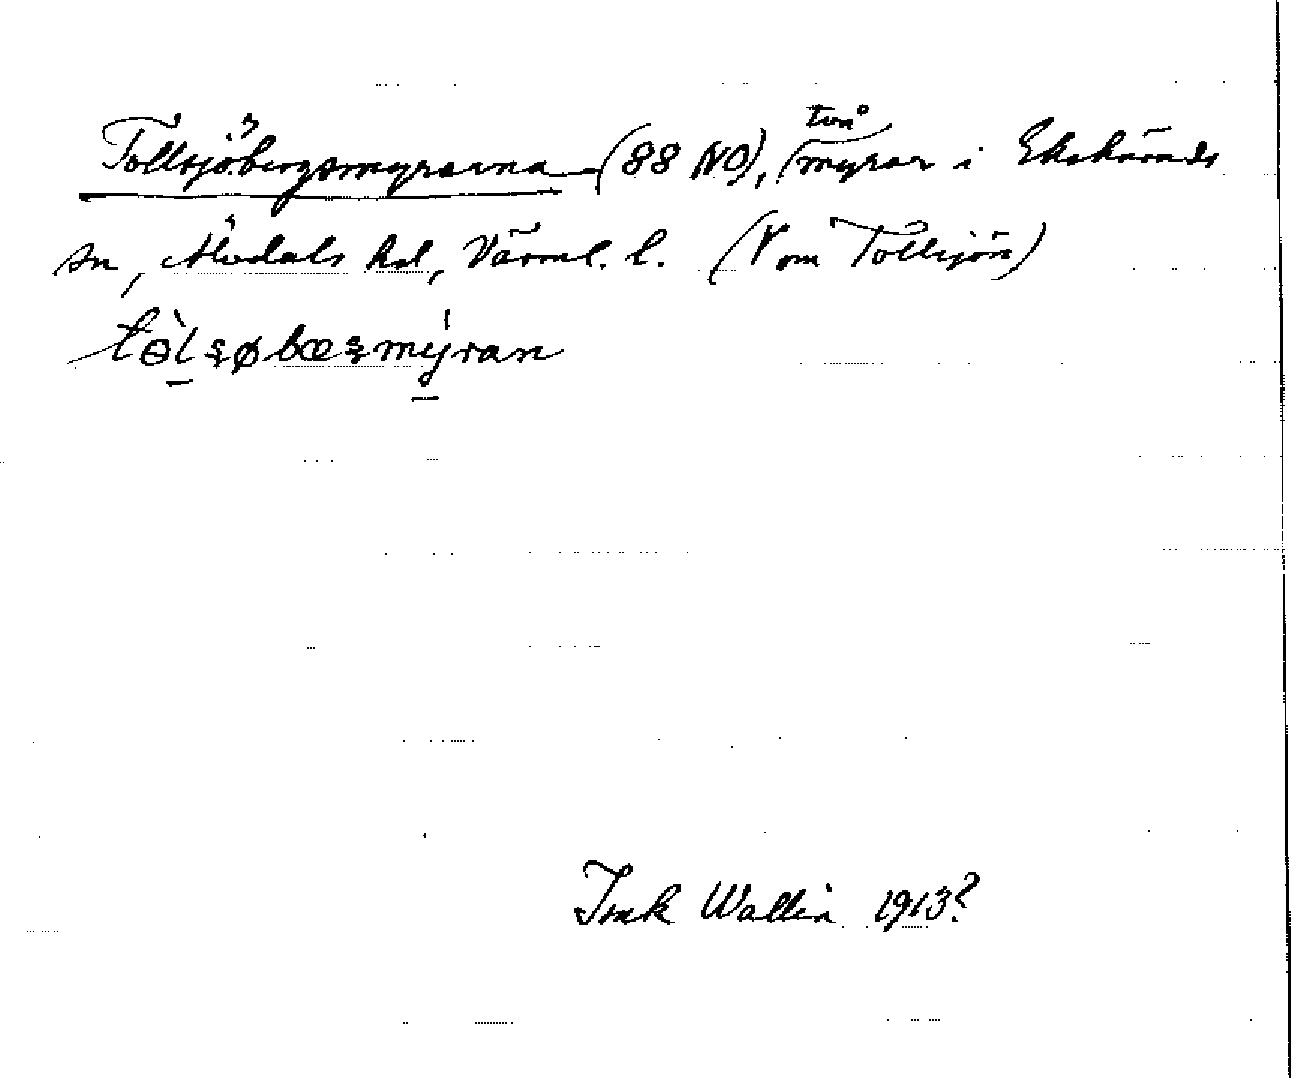 Tollsjöbergsmyrarna (88 NO), två myrar i Ekshärads
sn, Älvdals hd, Värml. l. (V om Tollsjön)
Isak Wallin 1913?